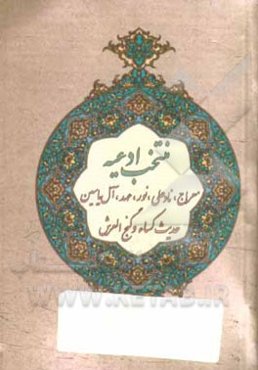 منتخب ادعیه
معراج، نادعلی، نور، عهد، آل یاسین
حدیث کساء و گنج العرش
WWW.KETAB.IR